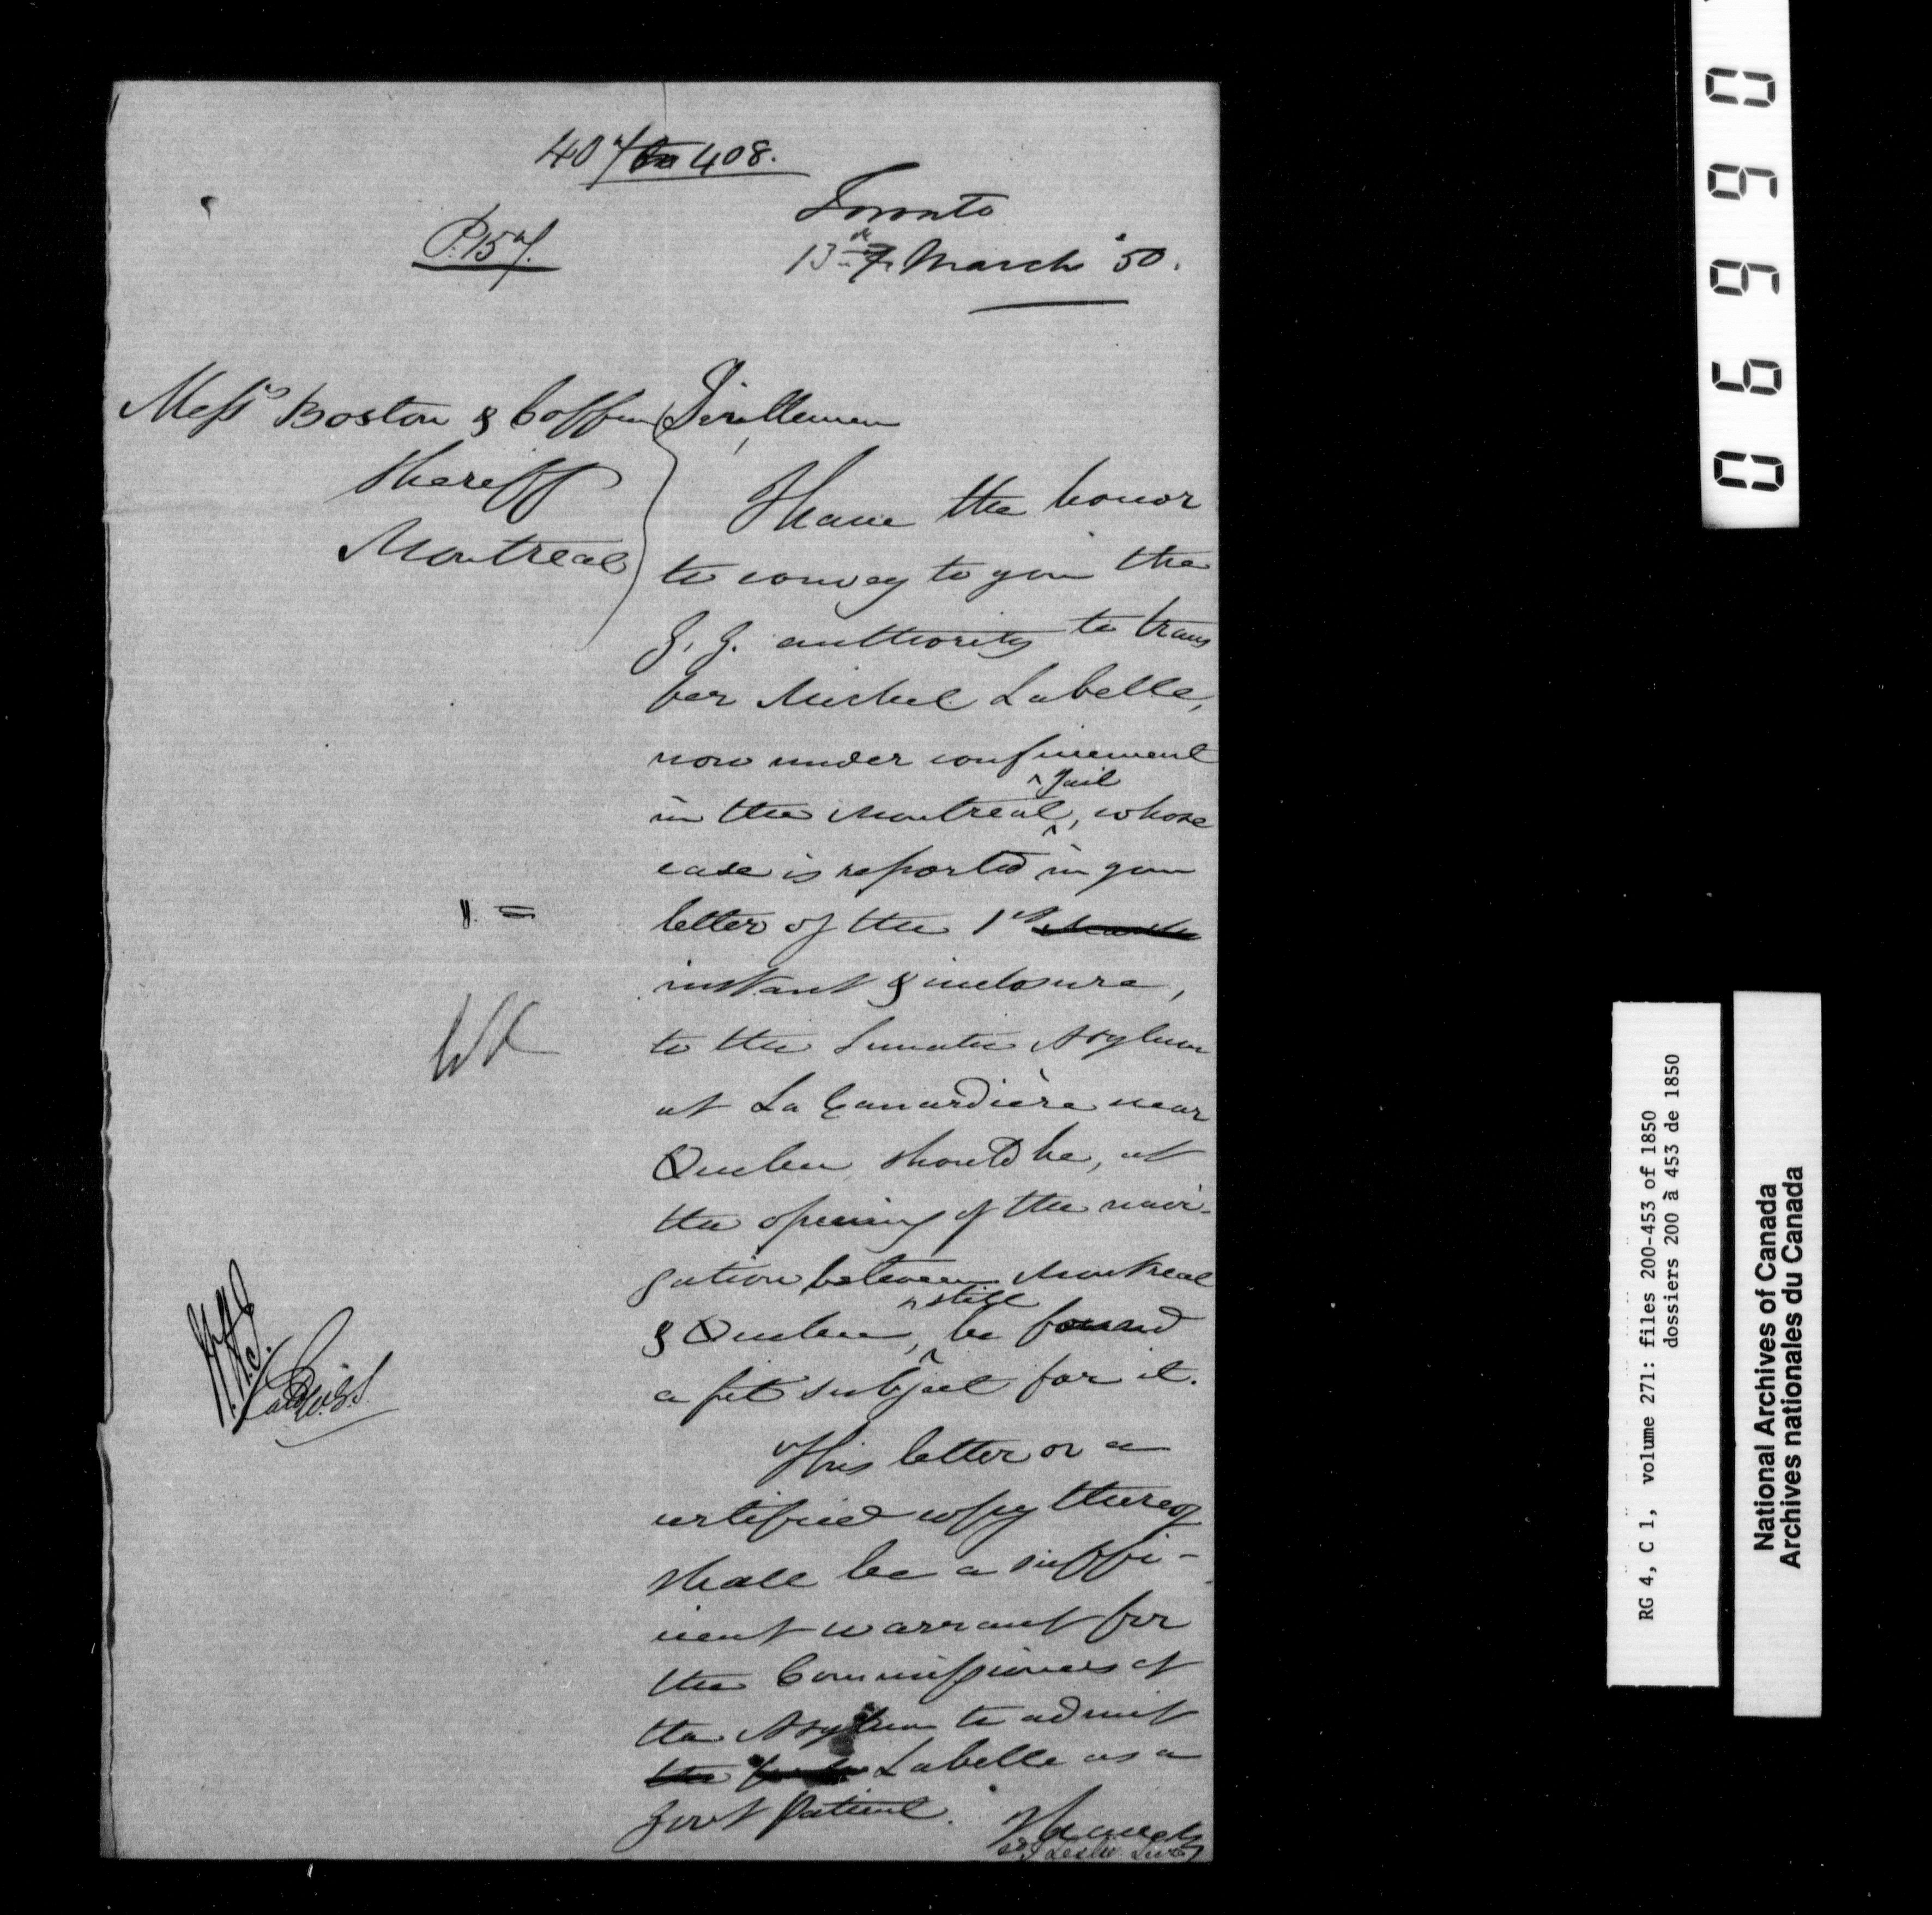 407 to 408.
P. 157.
Toronto
13th March '50.
Messrs Boston & Coffin
Sheriff
Montreal
Gentlemen
I have the honor
to convey to you the
G. G. authority to trans
fer Michel Labelle,
now under confinement
in the Montreal ^ Jail, whose
case is reported in your
letter of the 1st March
instant & inclosure,
to the Lunatic Asylum
at La Canardière near
Quebec, should he, at
the opening of the navi-
gation between Montreal
& Quebec, ^ still be found
a fit subject for it.
This letter or a
certified copy thereof
shall be a suffi-
cient warrant for
the Commissioners of
the Asylum to admit
the Labelle as a
Govt Patient.
I have &c
sd J Leslie Secy
0 6 6 9 0
RG 4, C 1, volume 271: files 200-453 of 1850
dossiers 200 à 453 de 1850
National Archives of Canada
Archives nationales du Canada